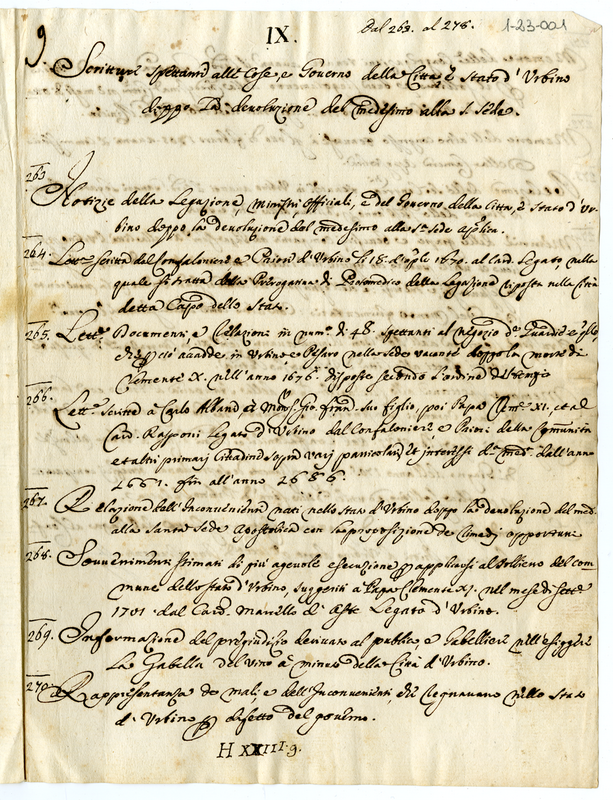 9.
IX.
Dal 263. al 278.
1-23-001
Scritture spettanti alle Cose, e Governo della Città, e Stato d'Urbino
doppo la devoluzione del medesimo alla S. Sede.
263
Notizie della Legazione, Ministri Officiali, e del Governo della Citta, e Stato d'Ur-
bino doppo la devoluzione del medesimo alla Sta Sede Aplica.
264. Lettª scritta dal Confaloniere e Priori d'Urbino li 18. d'Aple 1670. al Card. Legato, nella
quale si tratta della Prerogativa di Protomedico della Legazione riposta nella Città
detta Capo dello Stato.
265. Lettª Documenti, e Relazioni in numº di 48. spettanti al negozio
di ciò accadde in Urbino e Pesaro nella Sede vacante doppo la morte di
Clemente X. nell'anno 1676. disposte secondo l'ordine
266. Lettª Scritte à Carlo Albani, et Monsr Gio. Franc. suo figlio, poi Papa Clemte XI. et al
Card. Rasponi Legato d'Urbino dal Confaloniere, e Priori della Comunità
et altri primarj Cittadini sopra varj particolari, et interessi dª medª dell'anno
1661. fin all'anno 1686.
267. Relazione dell'Inconvenienti nati nello Stato d'Urbino doppo la devoluzione del med.
alla Santa Sede Apostolica con la proposizione de rimedj opportuni
268. Sovvenimenti stimati di più agevole esecuzione applicarsi al Sollievo del com
mune dello stato d'Urbino, suggeriti a Papa Clemente XI. nel mese di Sette
1701. dal Card. Legato d'Urbino.
269. Informazione del pregiudizio derivato al publico, e Gabelliere nell'esigere
la Gabella del vino à minuto della Città d'Urbino.
270. Rappresentanza de mali, e dell'Inconvenienti, che regnavano nello Stato
d'Urbino per difetto del governo.
H XXIII.9.